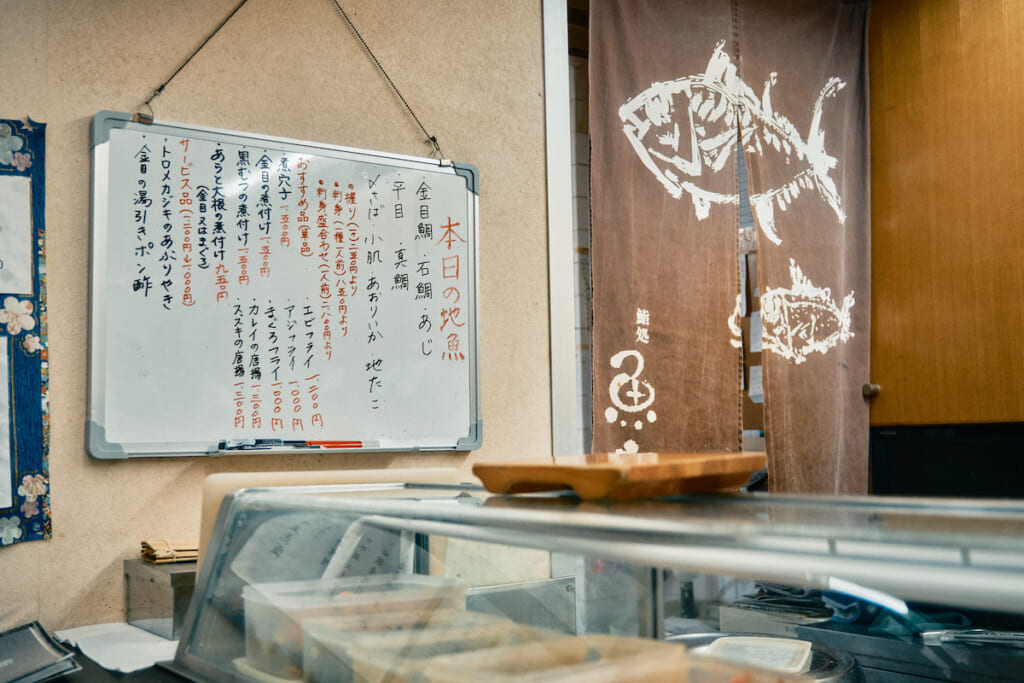 本日の地魚
・金目鯛 ・石鯛 ・あじ
・平目 ・真鯛
〆さば 小肌 あおりいか 地たこ
・握り(一ケ)二五〇円より
・刺身(一種一人前)八五〇円より
・刺身盛合わせ(一人前)二八〇〇円より
おすすめ品(単品)
・煮穴子 一、五〇〇円
・金目の煮付け 一、五〇〇円
・黒むつの煮付け 一、五〇〇円
・あらと大根の煮付け 九五〇円
(金目又はまぐろ)
サービス品(一、二〇〇円→一、〇〇〇円)
・トロメカジキのあぶりやき
・金目の湯引きポン酢
・エビフライ 一、二〇〇円
・アジフライ 一、〇〇〇円
・まぐろフライ 一、〇〇〇円
・カレイの唐揚 一、三〇〇円
・スズキの唐揚 一、三〇〇円
鮨処